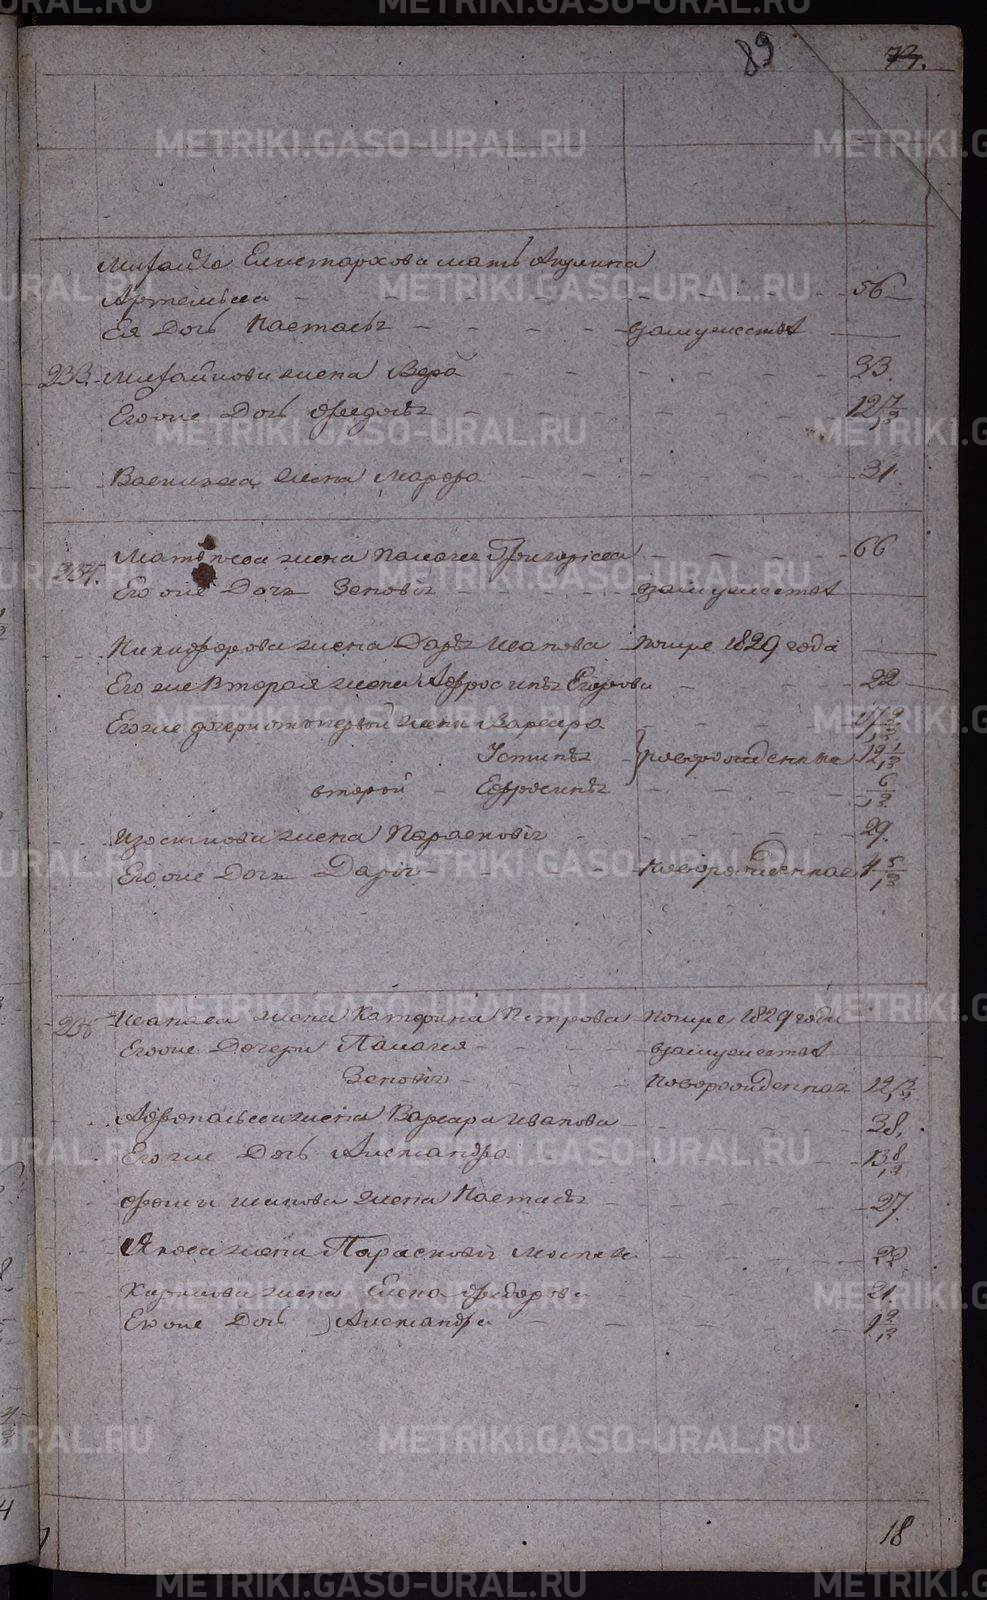 89 73.
Михайла Елистархова мать Акулина
Артемьева 56
Ея Дочь Настасья взамужестве
233. Михайлова жена Вера 33.
Его же Дочь Федосья 12 7/12
Васильева жена Марфа 31.
234. жена Палагея Григорьева 66
Его же Дочь Зеновия взамужестве
Никифорова жена Дарья Иванова помре 1829 года
Его же вторая жена Афросинья Егорова 22
Его же дочери от первой жени Варвара
Устинья новорожденные 12 1/2
второй Ефросинья 6/12
Изосимова жена Парасковия 29.
Его же Дочь Дария новорожденная 4 5/12
235 Иванова жена Катерина Петрова помре 1829 года
Его же Дочери Палагея взамужестве
Зеновия новорожденная
жена Варвара Иванова 38.
Его же Дочь Александра 13 8/12
жена Настасья 27.
Якова жена Парасковия 22.
жена Елена Федорова 21.
Его же Дочь Александра
18
METRIKI.GASO-URAL.RU